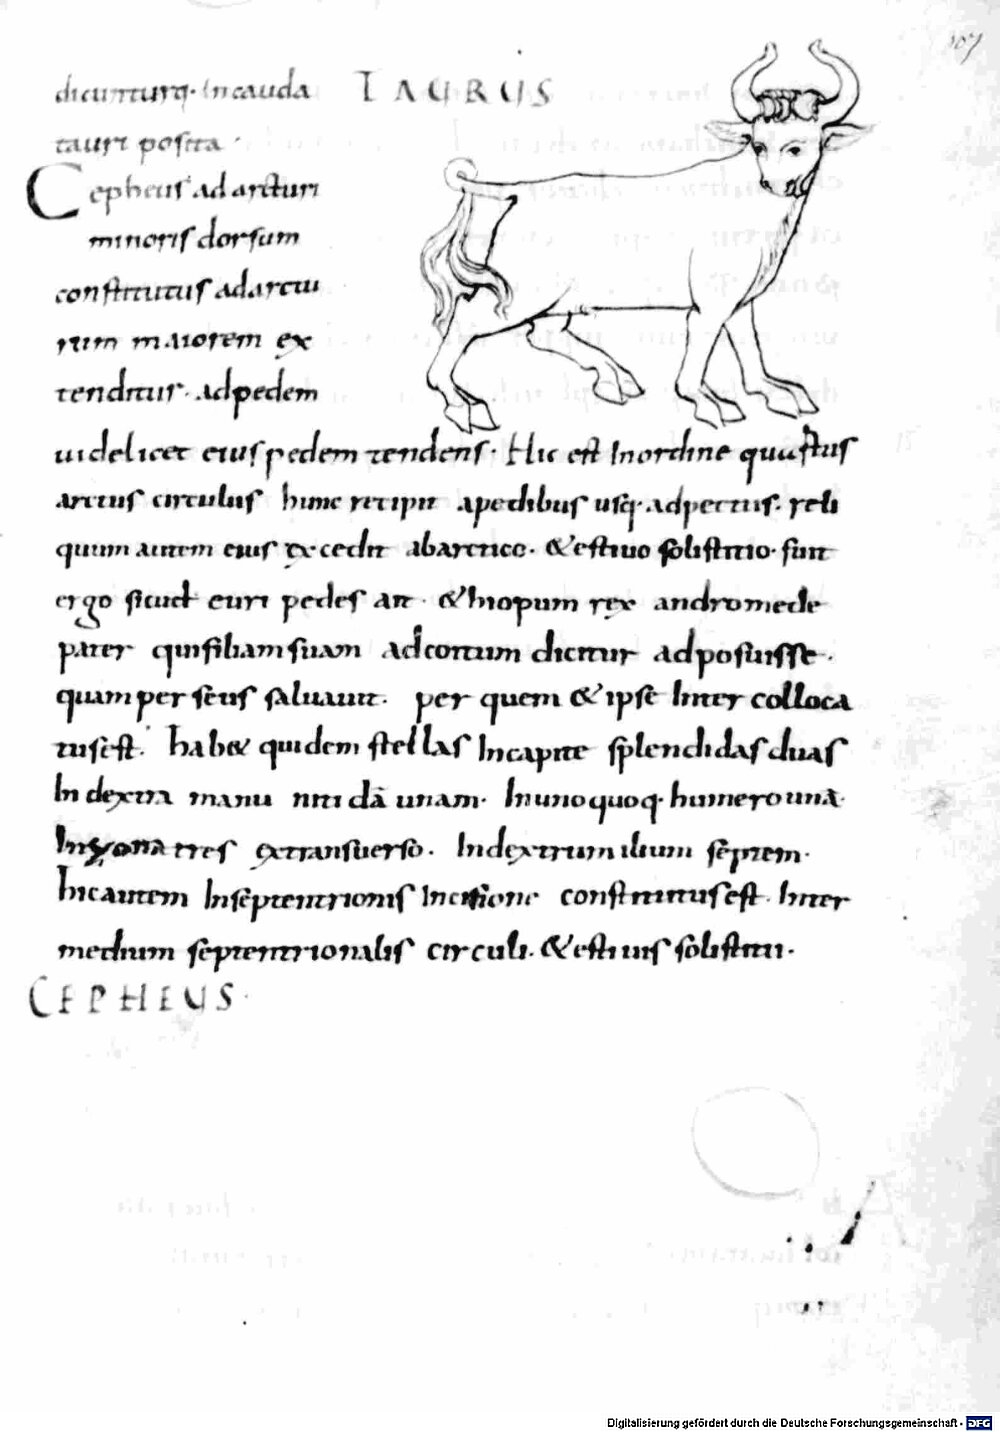 107
dicunturq. In cauda TAURUS
tauri posita.
Cepheus ad arcturi
minoris dorsum
constitutus ad arctu
rum maiorem ex
tenditur. ad pedem
uidelicet eius pedem tendens. Hic est In ordine quartus
arctus circulus hunc recipit a pedibus usq. ad pectus. reli
quum autem eius excedit ab arctico. & estiuo solistitio. sunt
ergo sicut euri pedes &hiopum rex andromede
pater qui filiam suam ad coetum dicitur adposuisse.
quam perseus saluauit. per quem & ipse Inter colloca
tus est. hab& quidem stellas In capite splendidas duas
In dextra manu nitidā unam. In uno quoq. humero unā.
In zona tres ex transuerso. In dextrum ilium septem.
hic autem In septentrionis constitutus est. Inter
medium septentrionalis circuli. & estiuis solistitii.
CEPHEUS.
Digitalisierung gefördert durch die Deutsche Forschungsgemeinschaft - DFG